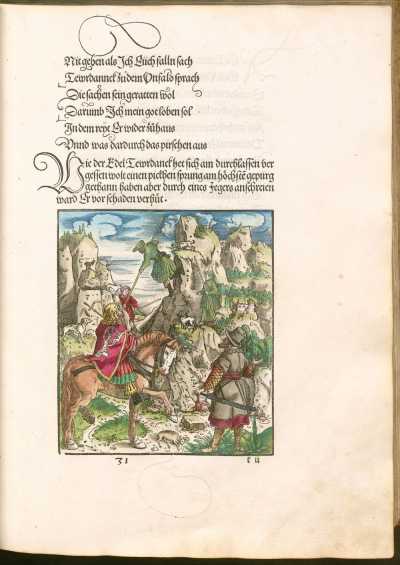 Nit gehen als Ich Euch salln sach
Tewrdannck zu dem Vnfalo sprach
Die sachen sein geratten wol
Darumb Ich mein got loben sol
In dem reyt Er wider zuhaus
Vnnd was dardurch das pirschen aus
Wie der Edel Tewrdanck het sich am durchlassen ver
gessen wolt einen sprung am höchstē gepurg
gethann haben aber durch eines Jegers anschreien
ward Er vor schaden verhüt.
31